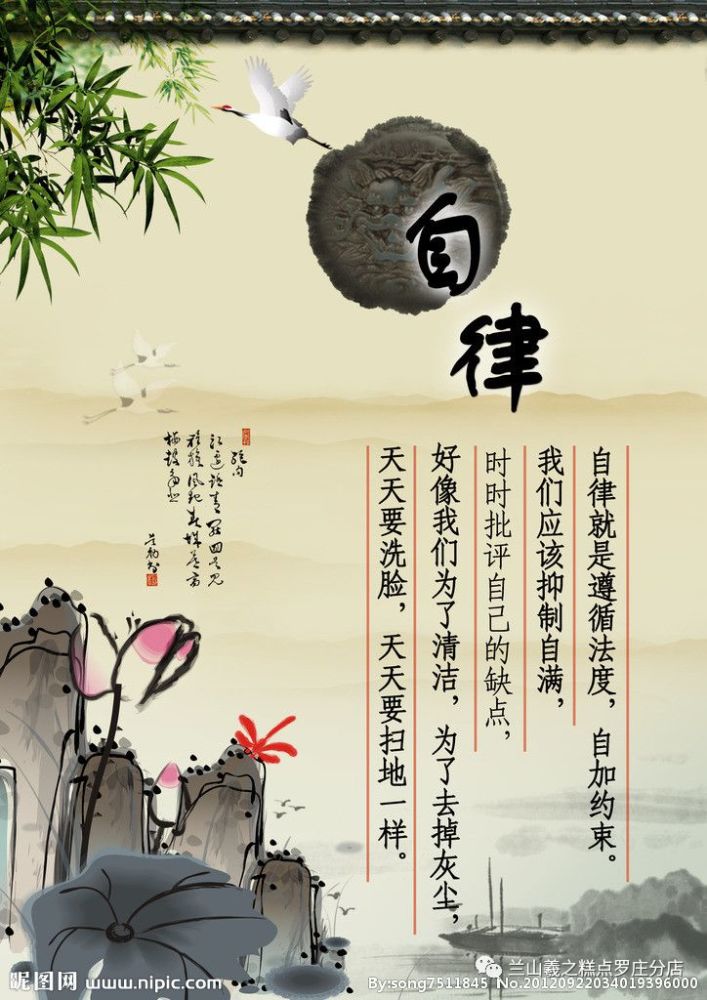 自律
自律就是遵循法度，自加约束。
我们应该抑制自满，
时时批评自己的缺点，
好像我们为了清洁，为了去掉灰尘，
天天要洗脸，天天要扫地一样。
昵图网 www.nipic.com
兰山羲之糕点罗庄分店
By:song7511845 No.20120922034019396000